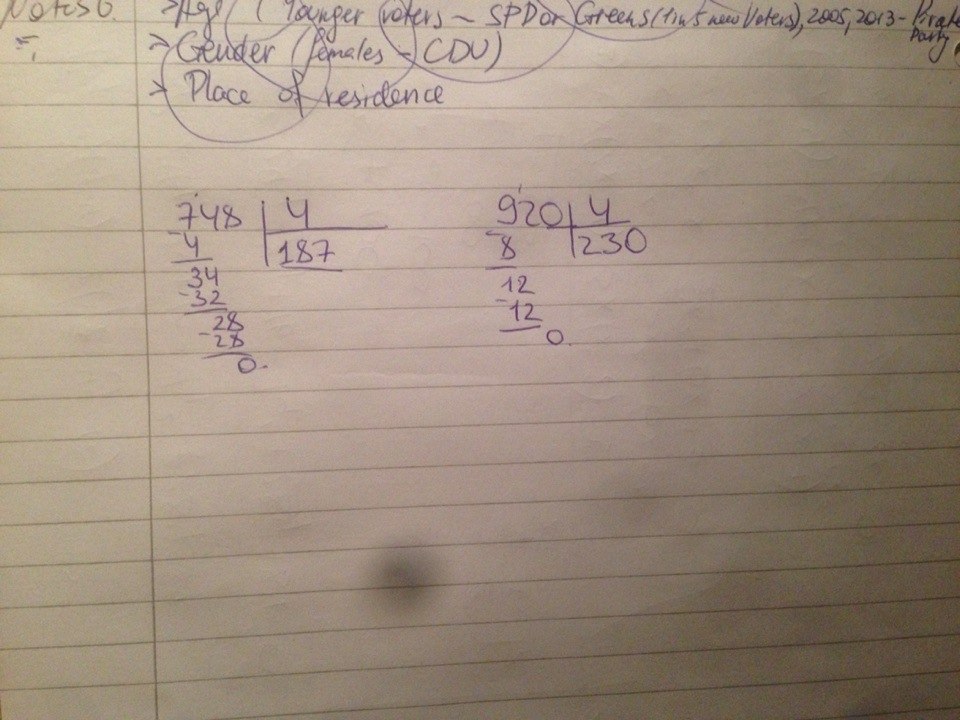 → Age (Younger voters – SPD or Greens (1 in 5 new Voters), 2005, 2013 - Pirate Party
→ Gender (females – CDU)
→ Place of residence
748 | 4
- 4 | 187
34
- 32
28
- 28
0.
920 | 4
- 8 | 230
12
- 12
0.